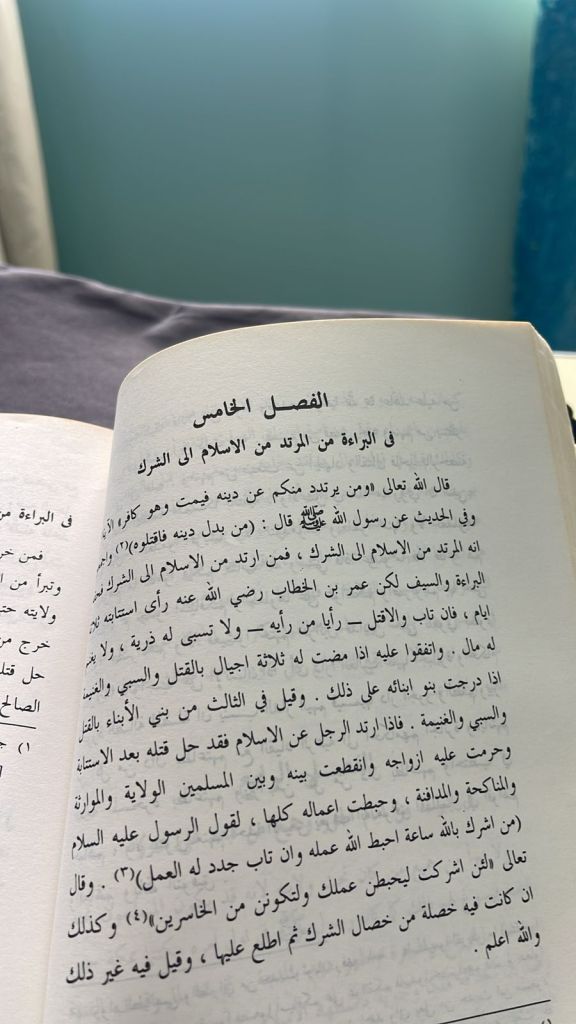 الفصل الخامس
فى البراءة من المرتد من الاسلام الى الشرك
قال الله تعالى «ومن يرتدد منكم عن دينه فيمت وهو كافر»
وفي الحديث عن رسول الله ﷺ قال : (من بدل دينه فاقتلوه)(٢)
انه المرتد من الاسلام الى الشرك ، فمن ارتد من الاسلام الى الشرك
البراءة والسيف لكن عمر بن الخطاب رضي الله عنه رأى استتابته
ايام ، فان تاب والاقتل — رأيا من رأيه — ولا تسبى له ذرية ، ولا
له مال . واتفقوا عليه اذا مضت له ثلاثة اجيال بالقتل والسبي والغنيمة
اذا درجت بنو ابنائه على ذلك . وقيل في الثالث من بني الأبناء بالقتل
والسبي والغنيمة . فاذا ارتد الرجل عن الاسلام فقد حل قتله بعد الاستتابة
وحرمت عليه ازواجه وانقطعت بينه وبين المسلمين الولاية والموارثة
والمناكحة والمدافنة ، وحبطت اعماله كلها ، لقول الرسول عليه السلام
(من اشرك بالله ساعة احبط الله عمله وان تاب جدد له العمل)(٣) . وقال
تعالى «لئن اشركت ليحبطن عملك ولتكونن من الخاسرين»(٤) وكذلك
ان كانت فيه خصلة من خصال الشرك ثم اطلع عليها ، وقيل فيه غير ذلك
والله اعلم .
فى البراءة
فمن
وتبرأ من
ولايته
خرج
حل
الصالح
(١